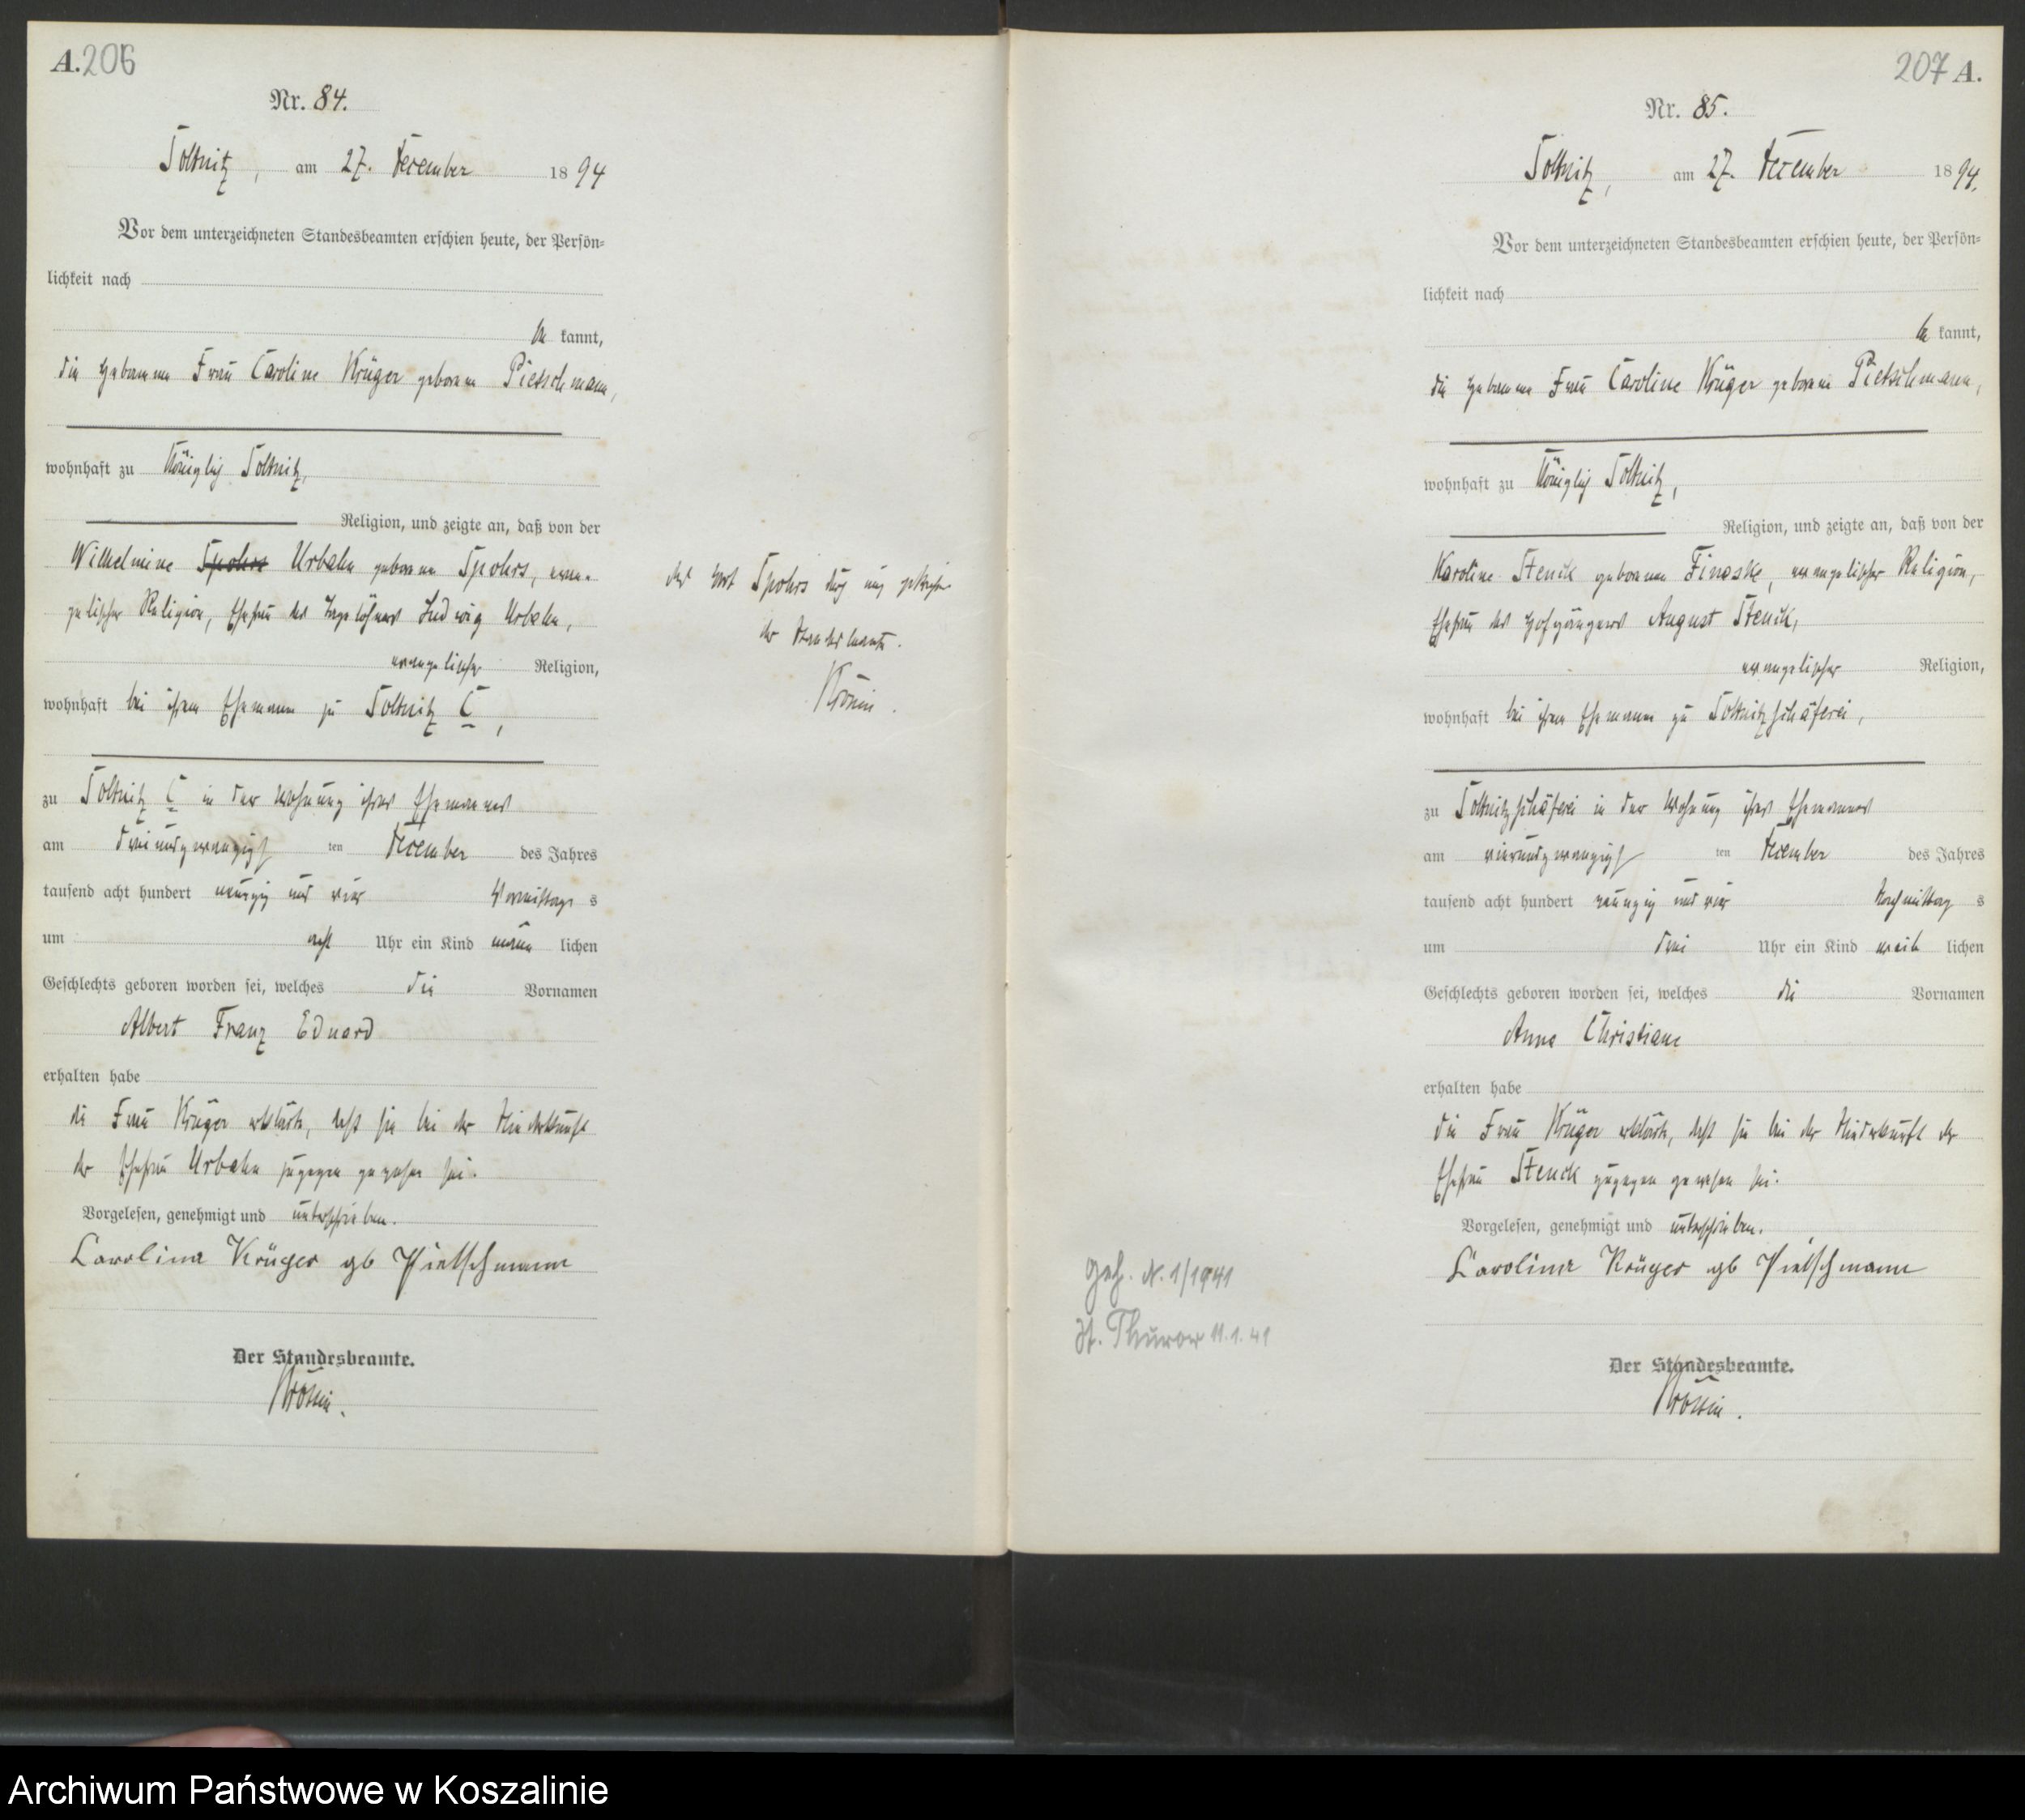 A. 206
Nr. 84.
Soltnitz, am 27. December 1894
Vor dem unterzeichneten Standesbeamten erschien heute, der Persön-
lichkeit nach
be kannt,
die Hebamme Frau Caroline Krüger geborene Pietschmann,
wohnhaft zu Königlich Soltnitz,
Religion, und zeigte an, daß von der
Wilhelmine Spohrs Urbahn geborene Spohrs, evan-
gelischer Religion, Ehefrau des Tagelöhners Ludwig Urbahn,
evangelischer Religion,
wohnhaft bei ihrem Ehemann zu Soltnitz C,
zu Soltnitz C in der Wohnung ihres Ehemannes
am dreiundzwanzigsten December des Jahres
tausend acht hundert neunzig und vier Vormittags
um acht Uhr ein Kind männlichen
Geschlechts geboren worden sei, welches die Vornamen
Albert Franz Eduard
erhalten habe
die Frau Krüger erklärte, daß sie bei der Niederkunft
der Ehefrau Urbahn zugegen gewesen sei.
Vorgelesen, genehmigt und unterschrieben.
Carolina Krüger gb Pietschmann
Der Standesbeamte.
das Wort Spohrs durch uns gestrichen
der Standesbeamte.
207 A.
Nr. 85.
Soltnitz, am 27. December 1894.
Vor dem unterzeichneten Standesbeamten erschien heute, der Persön-
lichkeit nach
be kannt,
die Hebamme Frau Caroline Krüger geborene Pietschmann,
wohnhaft zu Königlich Soltnitz,
Religion, und zeigte an, daß von der
Karoline Stenck geborene Finaske, evangelischer Religion,
Ehefrau des Hofgängers August Stenck,
evangelischer Religion,
wohnhaft bei ihrem Ehemann zu Soltnitzschäferei,
zu Soltnitzschäferei in der Wohnung ihres Ehemannes
am vierundzwanzigsten December des Jahres
tausend acht hundert neunzig und vier Nachmittags
um drei Uhr ein Kind weiblichen
Geschlechts geboren worden sei, welches die Vornamen
Anna Christiane
erhalten habe
die Frau Krüger erklärte, daß sie bei der Niederkunft der
Ehefrau Stenck zugegen gewesen sei.
Vorgelesen, genehmigt und unterschrieben.
Carolina Krüger gb Pietschmann
Der Standesbeamte.
N. 1/1941
Thurow 11.1.41
Archiwum Państwowe w Koszalinie